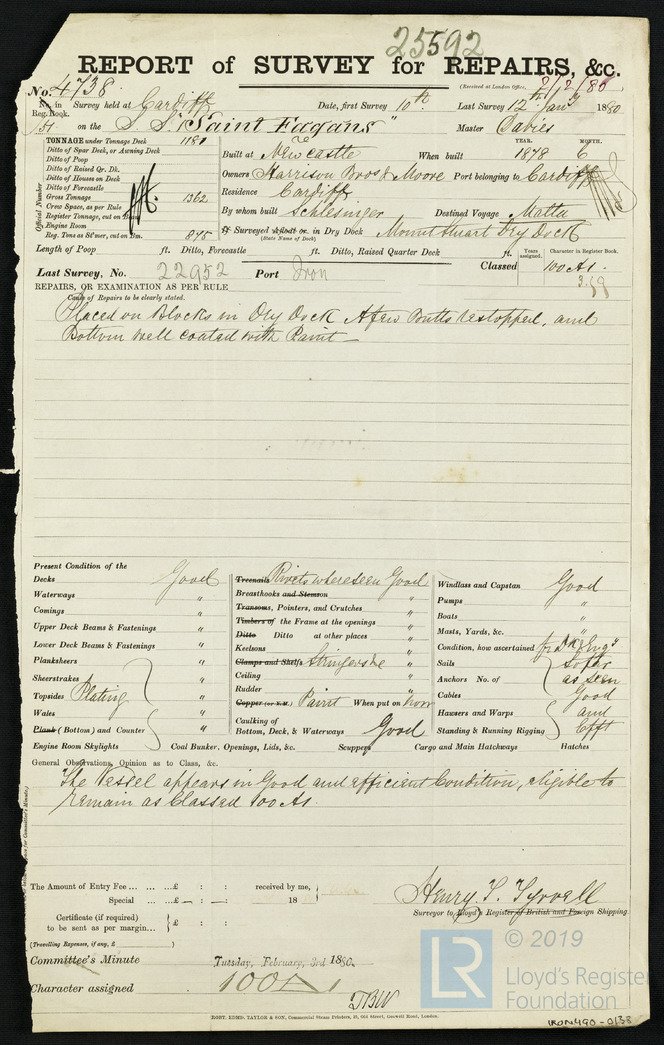 25592
REPORT of SURVEY for REPAIRS, &c.
(Received at London Office, 2/2/80
No. 4738
No. in Reg. Book. Survey held at Cardiff Date, first Survey 10th Last Survey 12th Jany 1880
on the S.S. "Saint Fagans" Master Davies
TONNAGE under Tonnage Deck 1181
Ditto of Spar Deck, or Awning Deck
Ditto of Poop
Ditto of Raised Qr. Dk.
Ditto of Houses on Deck
Ditto of Forecastle
Gross Tonnage 1362
Crew Space, as per Rule
Register Tonnage, cut on Beam
Engine Room
Reg. Tons as St'mer, cut on Bm. 875
Official Number
YEAR. MONTH.
Built at Newcastle When built 1878 6
Owners Harrison Bros & Moore Port belonging to Cardiff
Residence Cardiff
By whom built Schlesinger Destined Voyage Malta
If Surveyed Afloat or in Dry Dock Mount Stuart Dry Dock
(State Name of Dock)
Length of Poop ft. Ditto, Forecastle ft. Ditto, Raised Quarter Deck ft.
Years assigned. Character in Register Book.
Last Survey, No. 22952 Port Iron Classed 100 A1.
REPAIRS, OR EXAMINATION AS PER RULE
Cause of Repairs to be clearly stated.
Placed on Blocks in Dry Dock A few Butts restopped, and
Bottom well coated with Paint
Present Condition of the
Decks Good
Waterways "
Comings "
Upper Deck Beams & Fastenings "
Lower Deck Beams & Fastenings "
Planksheers "
Sheerstrakes "
Topsides Plating "
Wales "
Plank (Bottom) and Counter "
Engine Room Skylights Coal Bunker, Openings, Lids, &c. Scuppers Cargo and Main Hatchways Hatches
Treenails Rivets where seen Good
Breasthooks and Stemson "
Transoms, Pointers, and Crutches "
Timbers of the Frame at the openings "
Ditto Ditto at other places "
Keelsons "
Clamps and Shelfs Stringers &c "
Ceiling "
Rudder "
Copper (or Y.M.) Paint When put on now
Caulking of
Bottom, Deck, & Waterways Good
Windlass and Capstan Good
Pumps "
Boats "
Masts, Yards, &c. "
Condition, how ascertained
Sails so far
Anchors No. of as seen
Cables Good
Hawsers and Warps and
Standing & Running Rigging Efft
General Observations, Opinion as to Class, &c.
The Vessel appears in Good and efficient Condition, eligible to
remain as Classed 100 A1.
The Amount of Entry Fee ... ... ...£ : : received by me,
Special ... ...£ : : 18
Certificate (if required) to be sent as per margin... £ : :
(Travelling Expenses, if any, £ )
Henry T. Tyrrell
Surveyor to Lloyd's Register of British and Foreign Shipping
Committee's Minute Tuesday, February, 3rd 1880.
Character assigned 100 A1
TBW
ROBT. EDMD. TAYLOR & SON, Commercial Steam Printers, 19, Old Street, Goswell Road, London.
LR © 2019
Lloyd's Register
Foundation
IRON490-0138